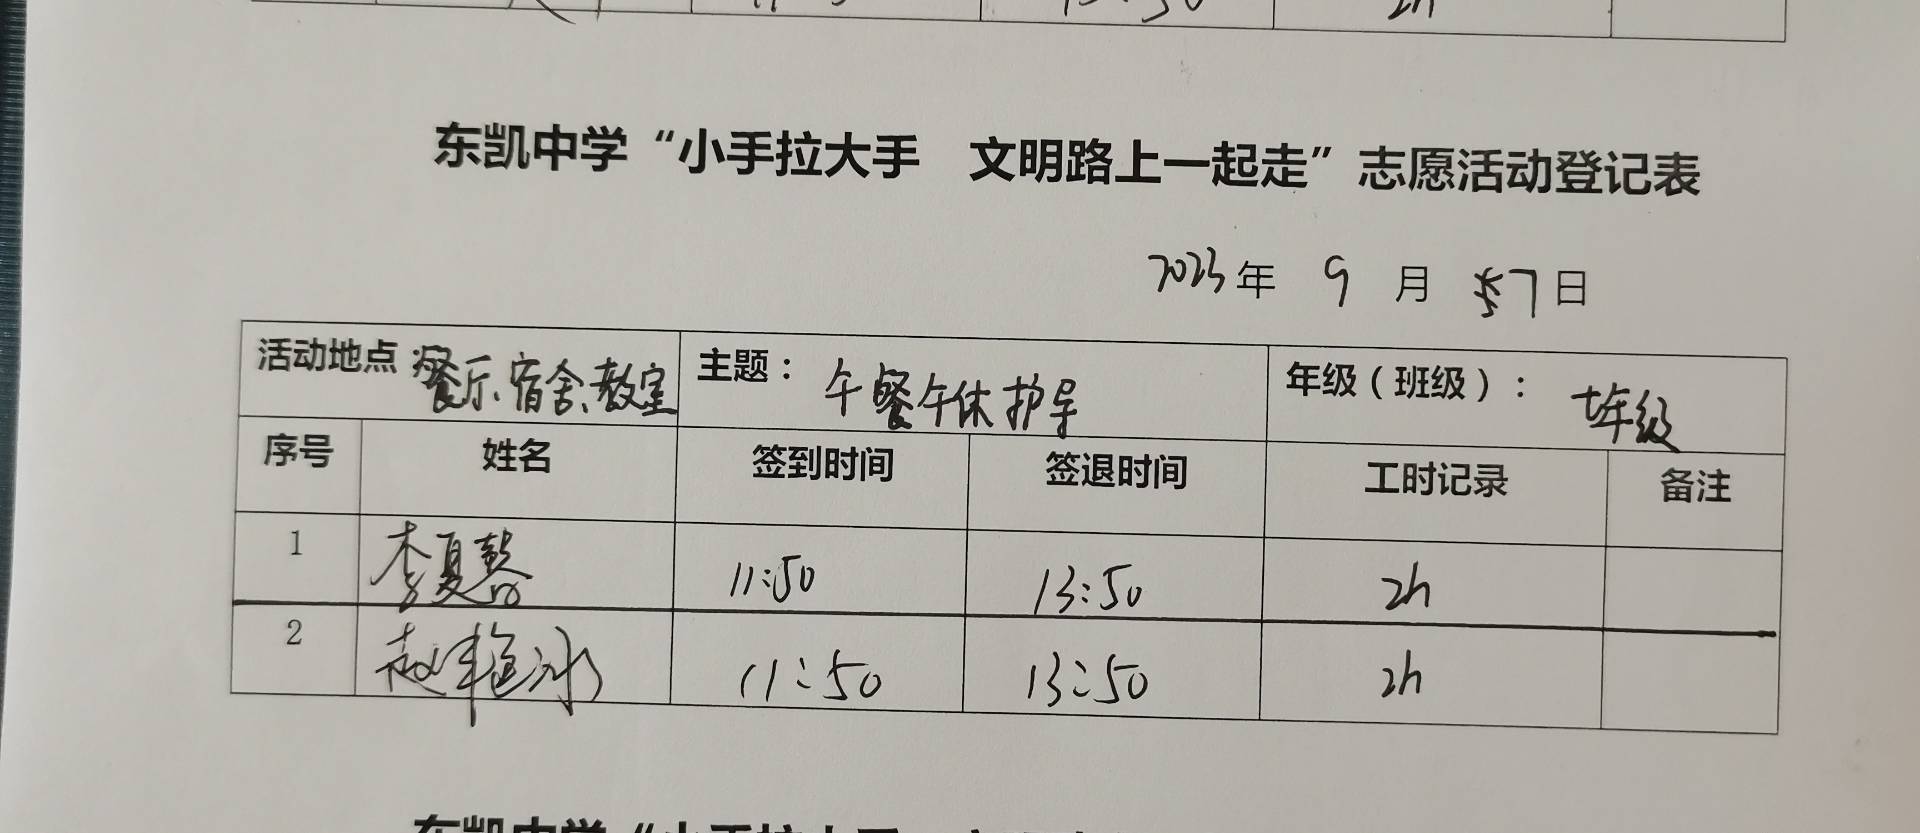 2h
东凯中学“小手拉大手 文明路上一起走”志愿活动登记表
2023年 9 月 7日
活动地点:餐厅、宿舍、教室 主题: 午餐午休护导 年级(班级): 七年级
序号 姓名 签到时间 签退时间 工时记录 备注
1 李夏馨 11:50 13:50 2h
2 11:50 13:50 2h